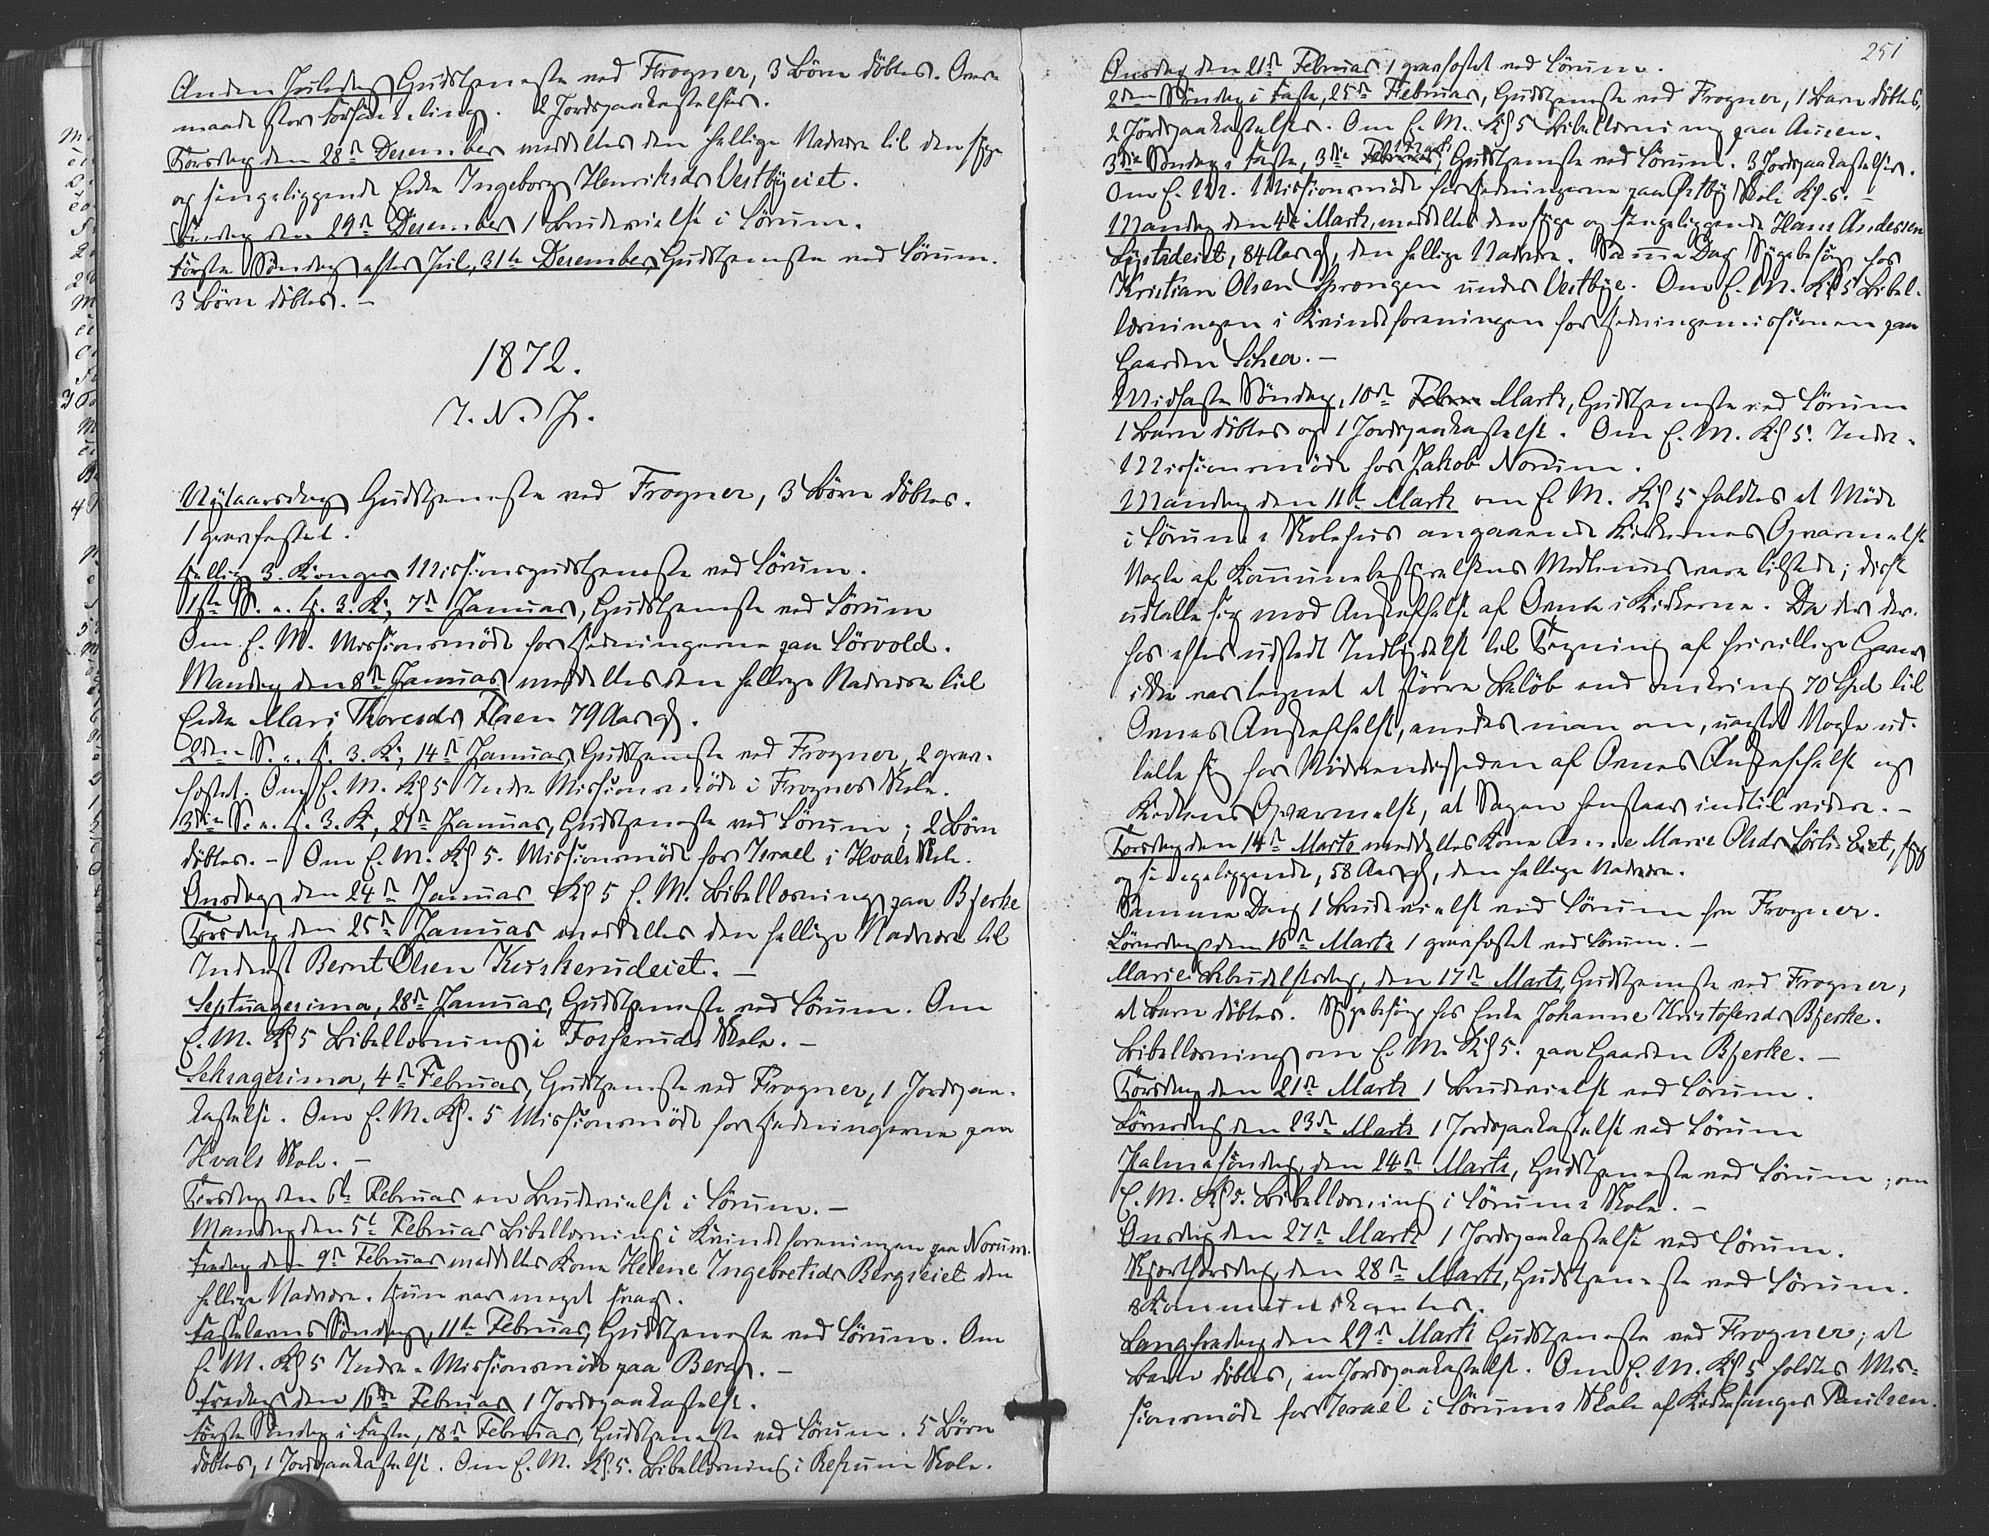 Anden Juledag Gudstjeneste ved Frogner, 3 Børn döbtes. Over-
maade stor Forsamling. 2 Jordpaakastelser.
Torsdag den 28de Desember meddeltes den hellige Nadvere til den syge
og sengeliggende Enke Ingeborg Henriksdr Vestbyeiet.
den 29de Desember 1 Brudevielse i Sörum.
Förste Söndag efter Jul, 31te Desember, Gudstjeneste ved Sörum.
3 Börn döbtes. –
1872.
I. N. J.
Nytaarsdag Gudstjeneste ved Frogner, 3 Börn döbtes.
1 gravfestet.
Hellig 3. Konger Missionsgudstjeneste ved Sörum.
1ste S. e. H. 3. K., 7de Januar, Gudstjeneste ved Sörum
Om E. M. Missionsmöde for Hedningerne paa Sörvold.
Mandag den 8de Januar meddeltes den hellige Nadvere til
Enke Mari Thoresdr Flaen 79 Aar gl.
2den S. e. H. 3. K., 14de Januar, Gudstjeneste ved Frogner, 2 grav-
festet. Om E. M. Kl 5 Indre Missionsmöde i Frogner Skole.
3die S. e. H. 3. K., 21de Januar, Gudstjeneste ved Sörum; 2 Börn
döbtes. – Om E. M. Kl 5. Missionsmöde for Israel i Hvals Skole.
Onsdag den 24de Januar Kl 5 E. M. Bibellæsning paa Bjerke
Torsdag den 25de Januar meddeltes den hellige Nadvere til
Inderst Bernt Olsen Kuskerudeiet. –
Septuagesima, 28de Januar, Gudstjeneste ved Sörum. Om
E. M. Kl 5 Bibellæsning i Fosserud Skole. –
Seksagesima, 4de Februar, Gudstjeneste ved Frogner, 1 Jordpaa-
kastelse. Om E. M. Kl. 5 Missionsmöde for Hedningerne paa
Hvals Skole. –
den 6te Februar en Brudevielse i Sörum. –
Mandag den 5te Februar Bibellæsning i Kvindeforeningen paa Norum.
Fredag den 9de Februar meddeltes Kone Helene Ingebretsdr Bergseiet den
hellige Nadvere. Hun var meget svag.
Fastelavns Söndag, 11te Februar, Gudstjeneste ved Sörum. Om
E. M. Kl 5 Indre-Missionsmöde paa Berg. –
Fredag den 16de Februar 1 Jordpaakastelse.
Förste Söndag i Faste, 18de Februar, Gudstjeneste ved Sörum. 5 Börn
döbtes, 1 Jordpaakastelse. Om E. M. Kl. 5. Bibellæsning i Refsum Skole.
251
Onsdag den 21de Februar 1 gravfestet ved Sörum.
2den Söndag i Faste, 25de Februar, Gudstjeneste ved Frogner, 1 Barn döbtes,
2 Jordpaakastelser. Om E. M. Kl 5 Bibellæsning paa Auen.
3die Söndag i Faste, 3die Marts, Gudstjeneste ved Sörum. 3 Jordpaakastelser.
Om E. M. Missionsmöde for Hedningerne paa Østby Skole Kl. 5. –
Mandag den 4de Marts meddeltes den syge og sengeliggende Hans Andersen
84 Aar gl, den hellige Nadvere. Samme Dag Sygebesög hos
Kristian Olsen Sprongen under Vestbye. Om E. M. Kl 5 Bibel-
læsningen i Kvindeforeningen for Hedningemissionen paa
Gaarden Schea. –
Midfaste Söndag, 10de Februar Marts, Gudstjeneste ved Sörum
1 Barn döbtes og 1 Jordpaakastelse. Om E. M. Kl 5. Indre-
Missionsmöde hos Jakob Norum.
Mandag den 11te Marts om E. M. Kl 5 holdtes et Möde
i Sörums Skolehus angaaende Kirkernes Opvarmelse
Nogle af Kommunebestyrelsens Medlemmer vare tilstede; disse
udtalte sig mod Anskaffelse af Ovne i Kirkerne. Da der der-
hos efter udstedt Indbydelse til Tegning af frivillige Gaver
ikke var tegnet et större Belöb end omkring 70 Spd til
Ovnes Anskaffelse, enedes man om, uagtet Nogle ud-
talte sig for Nödvendigheden af Ovnes Anskaffelse og
Kirkens Opvarmelse, at Sagen henstaar indtil videre. –
Torsdag den 14de Marts meddeltes Kone Anne Marie Olsdr Sörli Eiet, syg
og sengeliggende, 58 Aar gl, den hellige Nadvere.
Samme Dag 1 Brudevielse ved Sörum fra Frogner.
Lörerdag den 16de Marts 1 gravfestet ved Sörum. –
Mariæ Bebudelsesdag, den 17de Marts, Gudstjeneste ved Frogner;
et Barn döbtes. Sygebesög hos Enke Johanne Kristofersdr Bjerke.
Bibellæsning om E. M. Kl 5. paa Gaarden Bjerke. –
Torsdag den 21de Marts 1 Brudevielse ved Sörum.
Lörerdag den 23de Marts 1 Jordpaakastelse ved Sörum
Palmesöndag, den 24de Marts, Gudstjeneste ved Sörum; om
E. M. Kl 5. Bibellæsning i Sörums Skole. –
Onsdag den 27de Marts 1 Jordpaakastelse ved Sörum.
Skjærtorsdag, den 28de Marts, Gudstjeneste ved Sörum.
8 Kommunikanter.
Langfredag den 29de Marts Gudstjeneste ved Frogner; et
Barn döbtes, en Jordpaakastelse. Om E. M. Kl 5 holdtes Mis-
sionsmöde for Israel i Sörums Skole af Kirkesanger Paulsen.